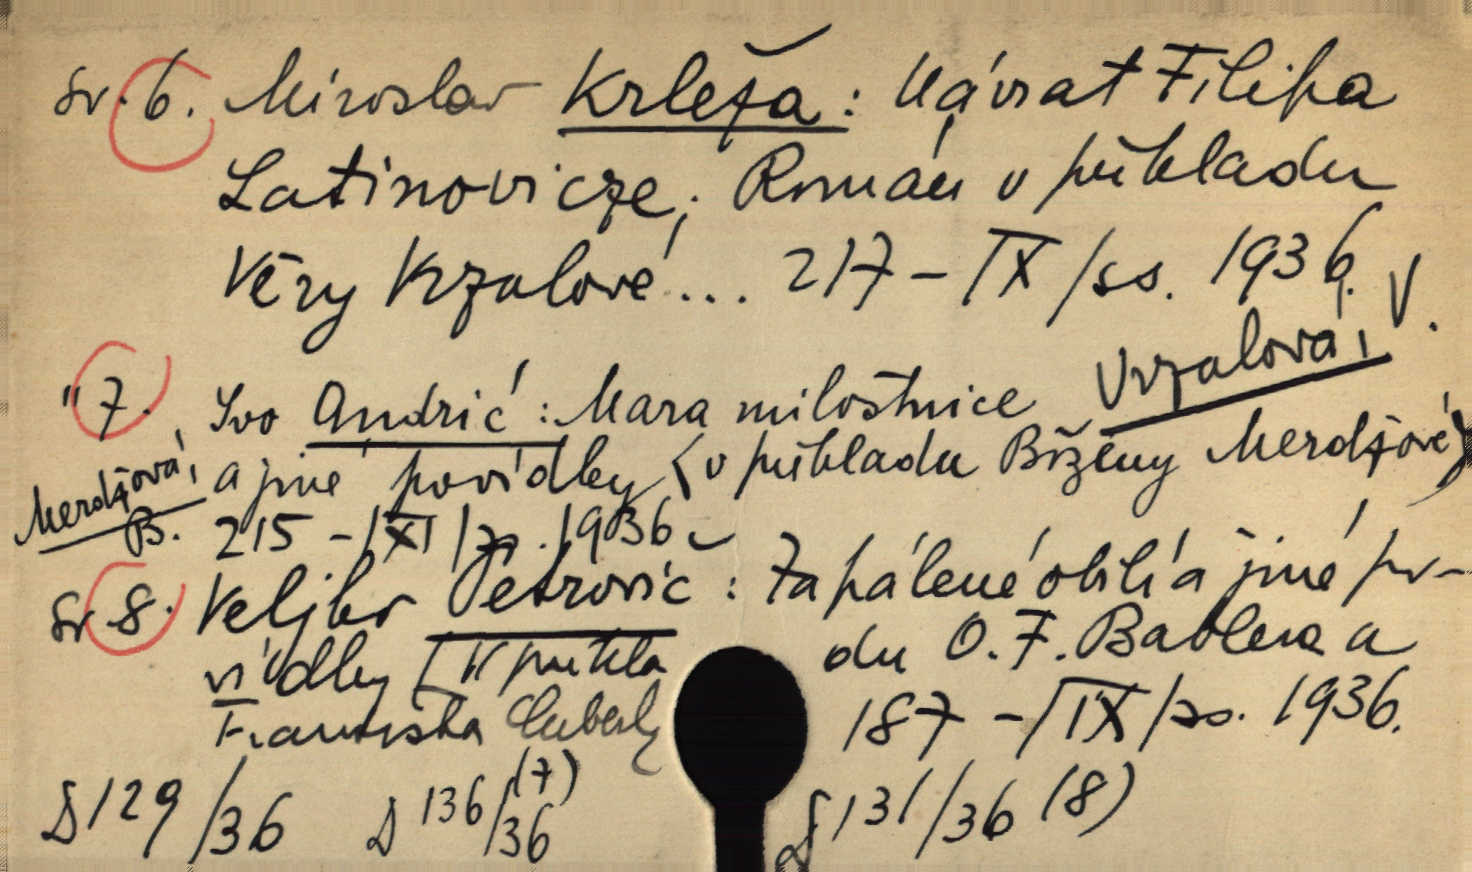 Sv. 6. Miroslav Krleža: Návrat Filipa
Latinovicze; Román v překladu
Věry Vrzalové... 217 - IX / ss. 1936.
Vrzalová, V.
" 7. Ivo Andrić: Mara milostnice
a jiné povídky (v překladu Boženy Merdžové)
Merdžová, B. 215 - XI / ss. 1936
Sv. 8. Veljko Petrović: Zapálené obilí a jiné po-
vídky [V překladu O. F. Bablera a
Františka 187 - IX / ss. 1936.
D 129/36 D 136/36 (7) D 131/36 (8)